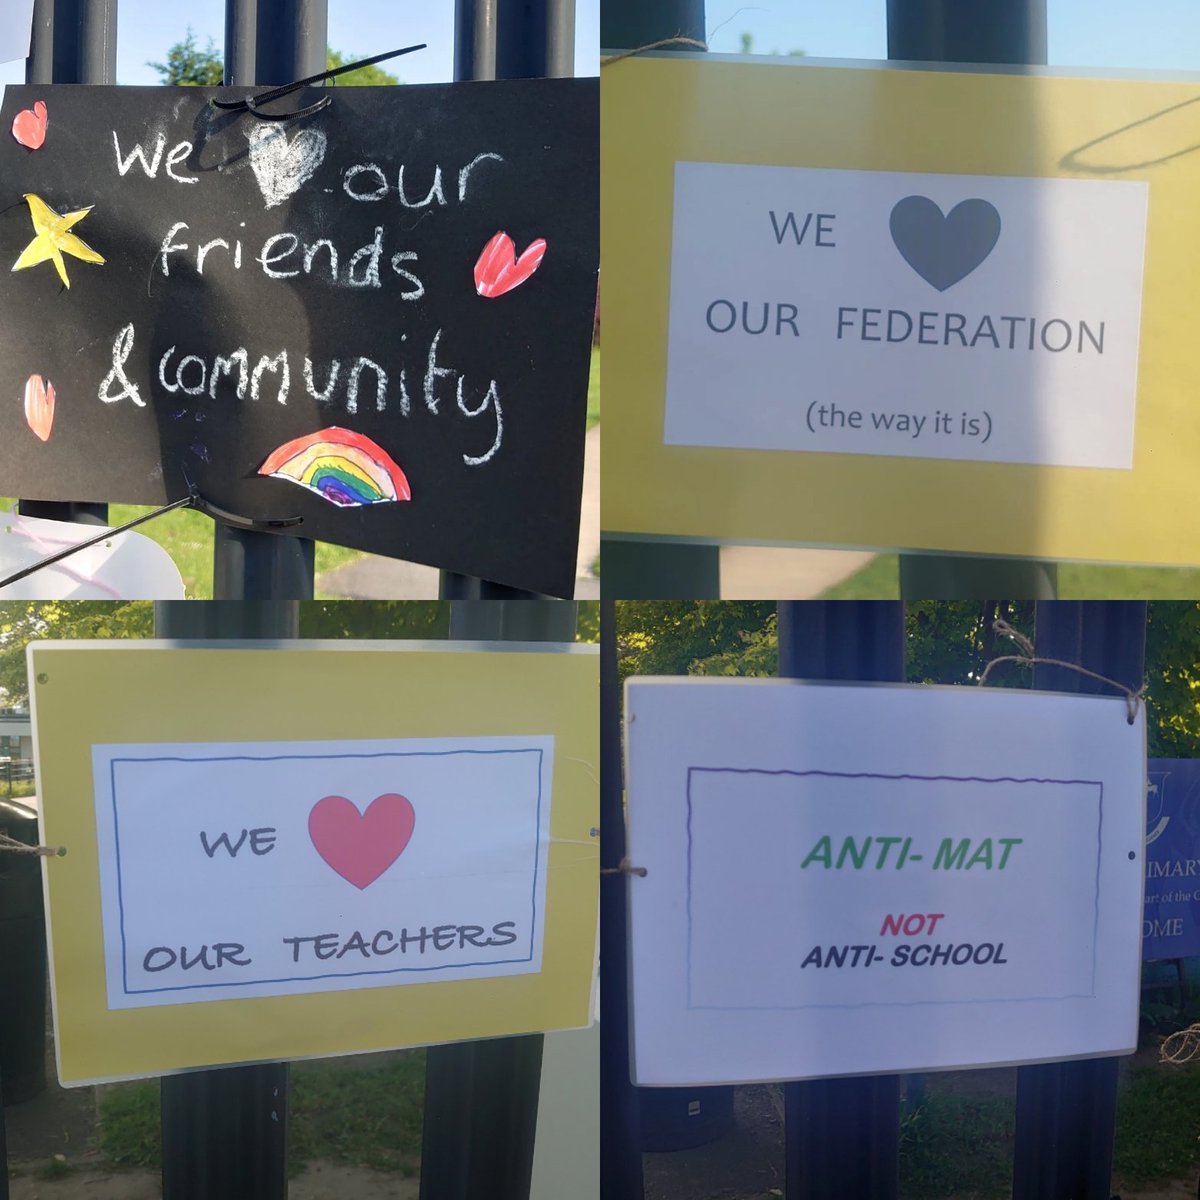 We ♥ our
friends
& community
WE ♥
OUR FEDERATION
(the way it is)
WE ♥
OUR TEACHERS
ANTI- MAT
NOT
ANTI- SCHOOL